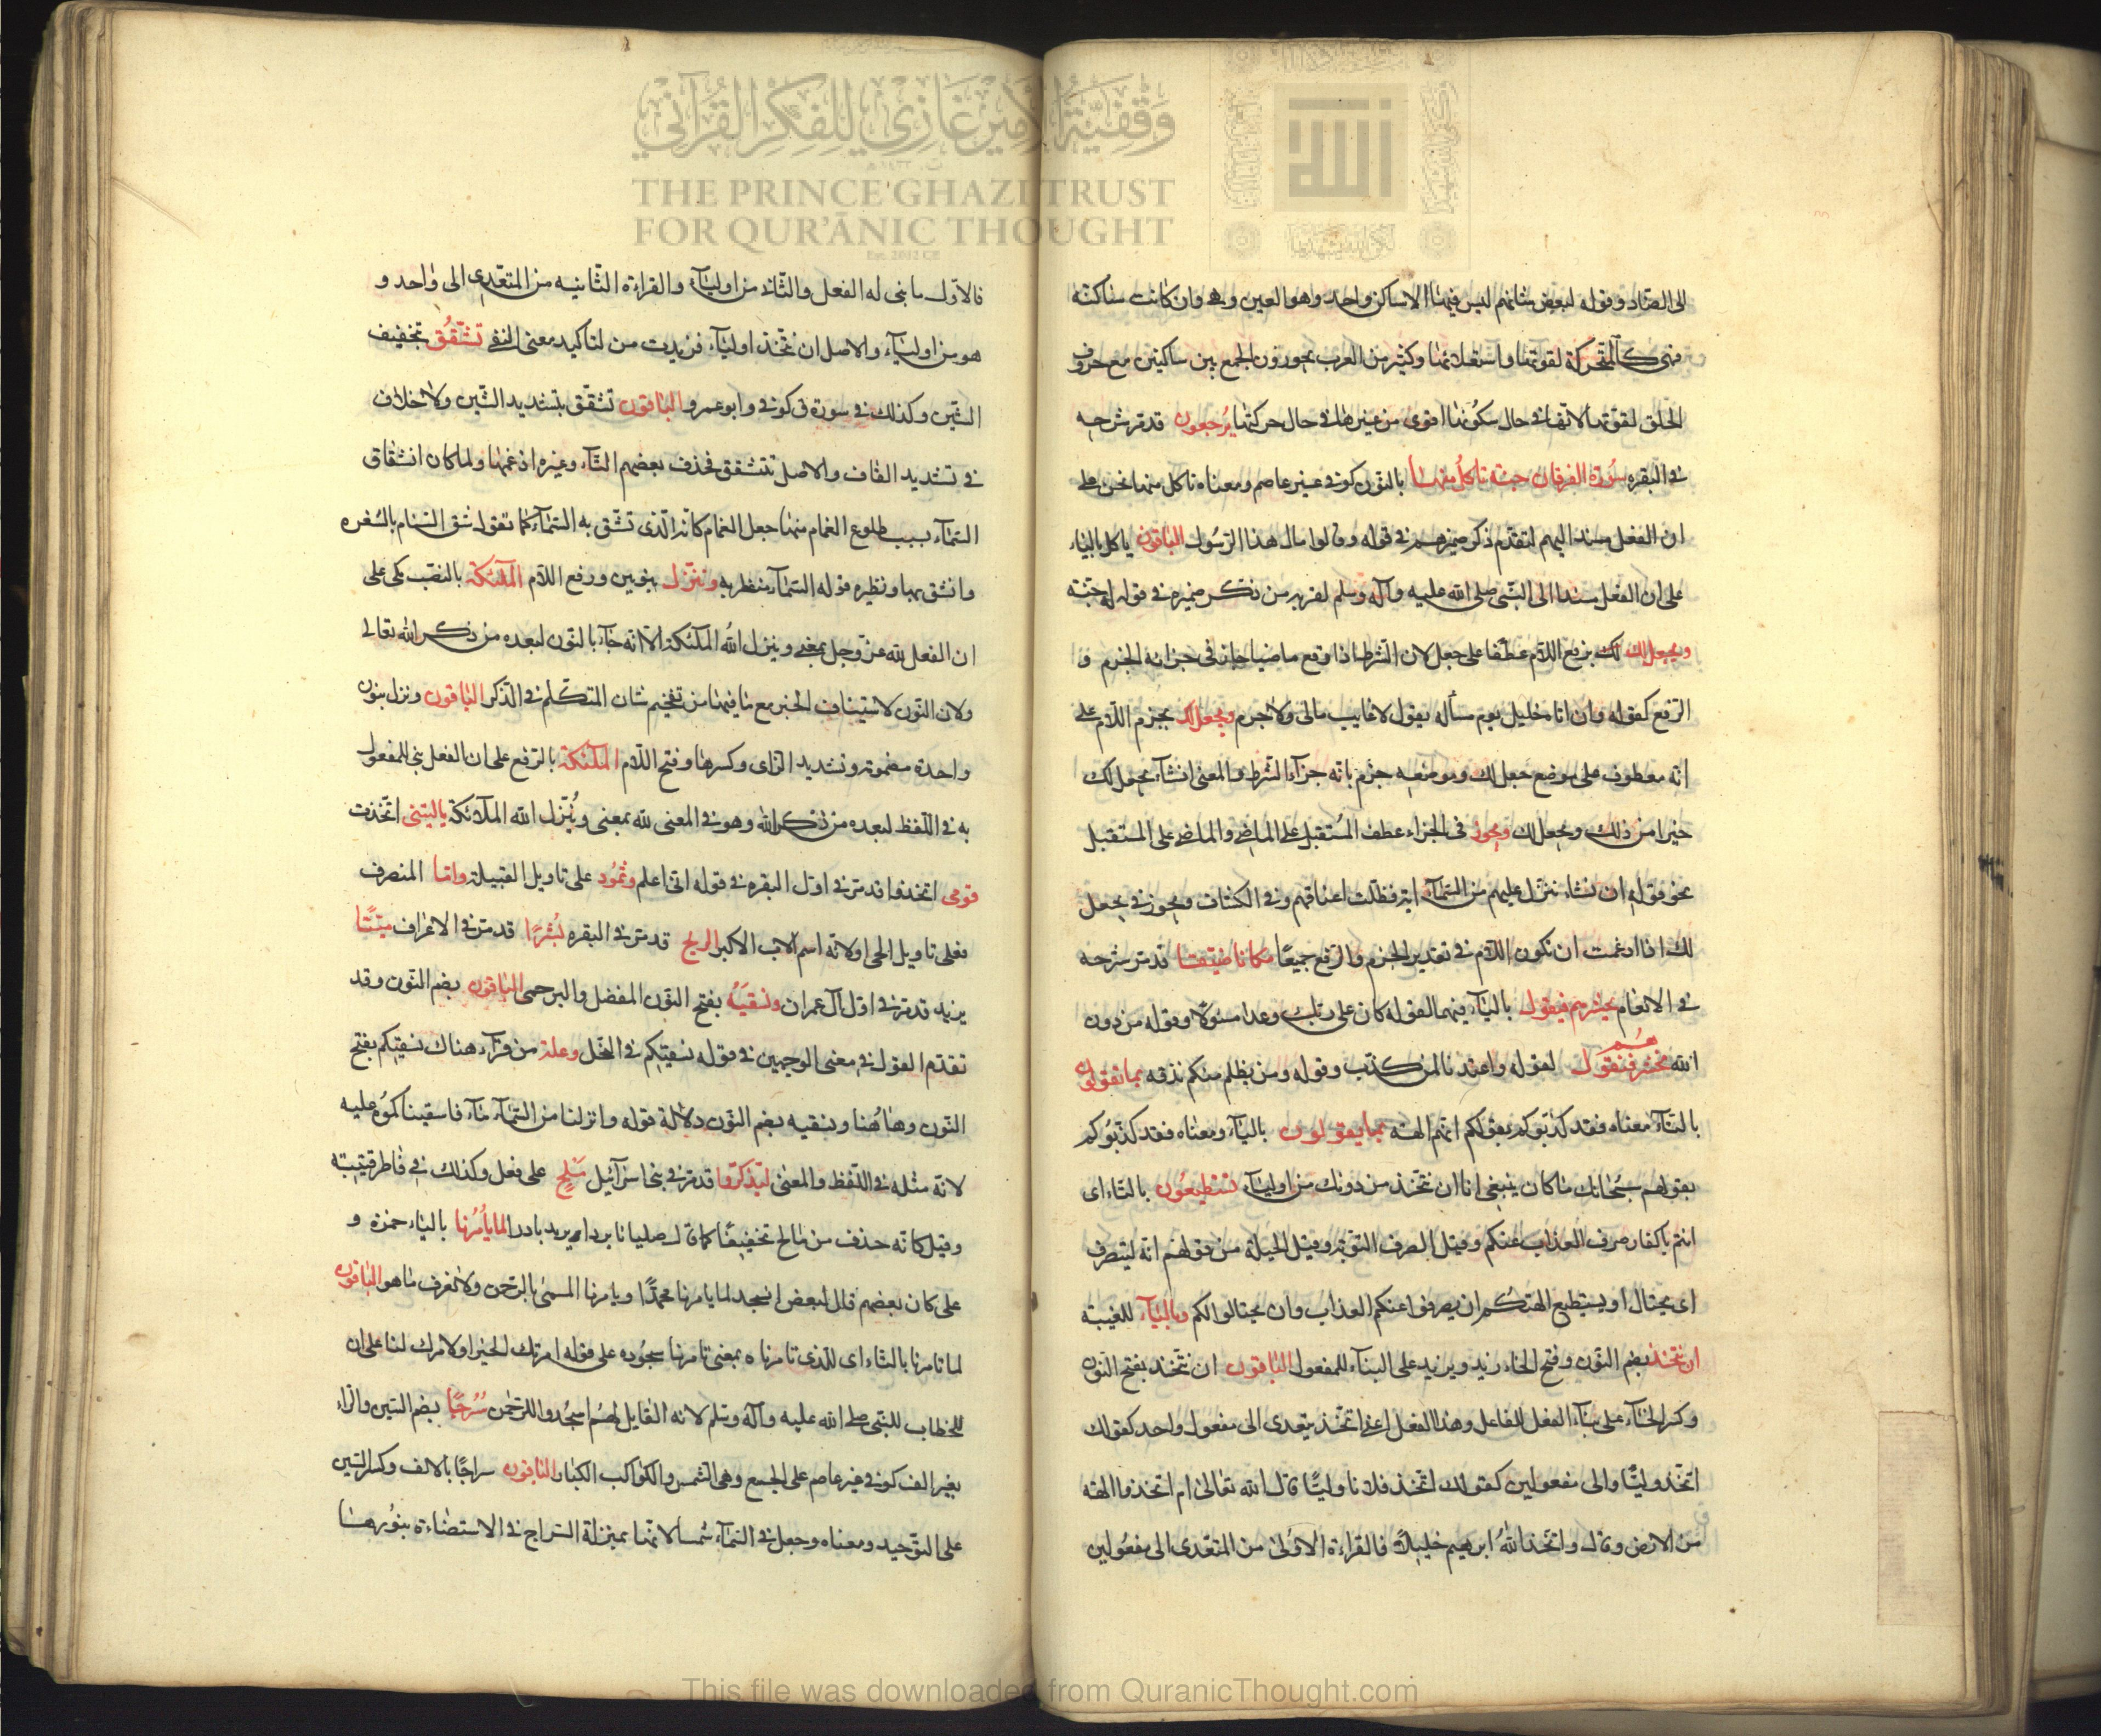 وقفية الأمير غازي للفكر القرآني
THE PRINCE GHAZI TRUST
FOR QUR'ĀNIC THOUGHT
الى الضاد وقوله لبعض شانهم ليس فيهما الا ساكن واحد وهو العين وهى وان كانت ساكنة
فهى كالمتحركة لقوتها واستعلائها وكثير من العرب يجوزون الجمع بين ساكنين مع حروف
الحلق لقوتها لانها فى حال سكونها اقوى من غيرها فى حال حركتها يُرجعون قد مر شرحه
فى البقره سورة الفرقان جنة ناكل منها بالنون كوفى غير عاصم ومعناه ناكل منها نحن على
ان الفعل مسند اليهم لتقدم ذكر ضميرهم فى قوله وقالوا مال هذا الرسول الباقون ياكل بالياء
على ان الفعل مسندا الى النبى صلى الله عليه وآله وسلم لقربه من ذكر ضميره فى قوله له جنة
ويجعل لك لك برفع اللام عطفا على جعل لان الشرط اذا وقع ماضيا جاز فى جزائه الجزم و
الرفع كقوله وان اتاه خليل يوم مسألة يقول لا غايب مالى ولا حرم ويجعل لك بجزم اللام على
انه معطوف على موضع جعل لك وموضعه جزم بانه جزاء الشرط والمعنى ان شاء يجعل لك
خيرا من ذلك ويجعل لك ويجوز فى الجزاء عطف المستقبل على الماضى والماضى على المستقبل
نحو قوله ان نشاء ننزل عليهم من السماء اية فظلت اعناقهم وفى الكشاف ويجوز فى يجعل
لك اذا ادغمت ان تكون اللام فى تقدير الجزم والرفع جميعا مكانا ضيقا قد مر شرحه
فى الانعام يحشرهم فيقول بالياء فيهما لقوله كان على ربك وعدا مسئولا وقوله من دون
الله نحشرهم فنقول لقوله واعتدنا لمن كذب وقوله ومن يظلم منكم نذقه بما تقولون
بالتاء معناه فقد كذبوكم بقولكم انهم الهة بما يقولون بالياء ومعناه فقد كذبوكم
بقولهم سبحانك ما كان ينبغى لنا ان نتخذ من دونك من اولياء تستطيعون بالتاء اى
انتم يا كفار صرف العذاب عنكم وقيل الصرف التوبة وقيل الحيلة من قولهم انه ليتصرف
اى يحتال او يستطيع الهتكم ان يصرفوا عنكم العذاب وان يحتالوا لكم وبالياء للغيبة
ان نتخذ بضم النون وفتح الخاء زيد ويزيد على البناء للمفعول الباقون ان نتخذ بفتح النون
وكسر الخاء على بناء الفعل للفاعل وهذا الفعل اعنى اتخذ يتعدى الى مفعول واحد كقولك
اتخذ وليا والى مفعولين كقولك اتخذ فلانا وليا قال الله تعالى ام اتخذوا الهة
من الارض وقال واتخذ الله ابرهيم خليلا فالقراءة الاولى من المتعدى الى مفعولين
فالاول ما بنى له الفعل والثانى من اولياء والقراءة الثانيه من المتعدى الى واحد و
هو من اولياء والاصل ان نتخذ اولياء فزيدت من لتاكيد معنى النفى تشقق بتخفيف
الشين وكذلك فى سورة ق كوفى وابو عمرو الباقون تشقق بتشديد الشين ولا خلاف
فى تشديد القاف والاصل تتشقق فحذف بعضهم التاء وغيره ادغمها ولما كان انشقاق
السماء بسبب طلوع الغمام منها جعل الغمام كانه الذى تشق به السماء كما تقول شق السنام بالشفره
وانشق بها ونظيره قوله السماء منفطر به وننزل بنونين ورفع اللام الملئكة بالنصب مكى على
ان الفعل لله عز وجل بمعنى وينزل الله الملئكة الا انه جاء بالنون لبعده من ذكر الله تعالى
ولان النون لاستيناف الخبر مع ما فيها من تفخيم شان المتكلم فى الذكر الباقون ونزل بنون
واحدة مضمومة وتشديد الزاى وكسرها وفتح اللام الملئكة بالرفع على ان الفعل بنى للمفعول
به فى اللفظ لبعده من ذكر الله وهو فى المعنى لله بمعنى ويُنزل الله الملائكة يا ليتنى اتخذت
قومى اتخذوا قد مر فى اول البقره فى قوله انى اعلم وثمود على تاويل القبيلة واما المنصرف
فعلى تاويل الحى او لانه اسم الاب الاكبر الريح قد مر فى البقره بُشرًا قد مر فى الاعراف ميتًا
يزيد قد مر فى اول آل عمران ونَسقيَهُ بفتح النون المفضل والبرجمى الباقون بضم النون وقد
تقدم القول فى معنى الوجهين فى قوله نسقيكم فى النحل وعلة من قرأ هناك نسقيكم بفتح
النون وها هُنا ونسقيه بضم النون دلالة قوله وانزلنا من السماء ماء فاسقيناكموه عليه
لانه مثله فى اللفظ والمعنى ليذكروا قد مر فى بنى اسرائيل مَلِح على فعل وكذلك فى فاطر قتيبة
وقيل كانه حذف من مالح تخفيفًا كما قال صليانا بردا يريد باردا لما يأمُرُنا بالياء حمزة و
على كان بعضهم قال لبعض انسجد لما يامرنا محمدًا ويامرنا المسمى بالرحمن ولا نعرف ما هو الباقون
لما تامرنا بالتاء اى للذى تامرناه بمعنى تامرنا سجوده على قوله امرتك الخير او لامرك لنا على ان
الخطاب للنبى صلى الله عليه وآله وسلم لانه القايل لهم اسجدوا للرحمن سُرُجًا بضم السين والراء
بغير الف كوفى غير عاصم على الجمع وهى الشمس والكواكب الكبار الباقون سراجًا بالالف وكسر السين
على التوحيد ومعناه وجعل فى السماء شمسا لانها بمنزلة السراج فى الاستضاءة بنورها
This file was downloaded from QuranicThought.com